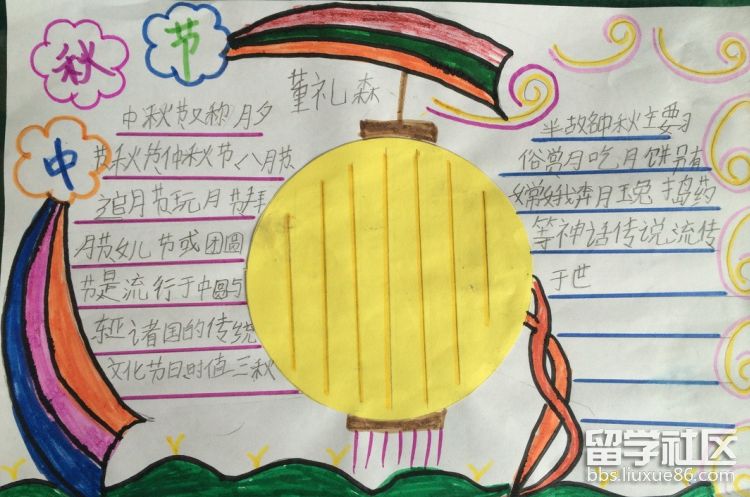 中秋节
董礼森
中秋节又称月夕
节秋节仲秋节八月节
追月节玩月节拜
月节女儿节或团圆
节是流行于中国与
东亚诸国的传统
文化节日时值三秋
半故钟秋主要习
俗赏月吃月饼另有
嫦娥奔月玉兔捣药
等神话传说流传
于世
留学社区
bbs.liuxue86.com